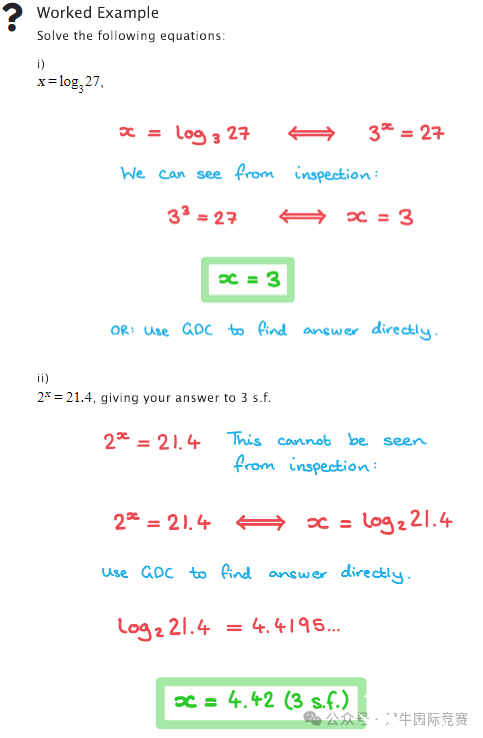 ?
Worked Example
Solve the following equations:
i)
x = log₃27,
x = log₃ 27 ⟺ 3ˣ = 27
We can see from inspection:
3³ = 27 ⟺ x = 3
x = 3
OR: use GDC to find answer directly.
ii)
2ˣ = 21.4, giving your answer to 3 s.f.
2ˣ = 21.4 This cannot be seen
from inspection:
2ˣ = 21.4 ⟺ x = log₂ 21.4
use GDC to find answer directly.
log₂ 21.4 = 4.4195...
x = 4.42 (3 s.f.)
公众号 · 牛国际竞赛